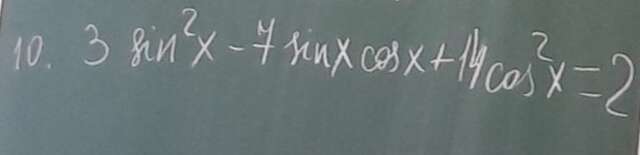 10. 3 sin²x - 7 sinx cosx + 14 cos²x = 2